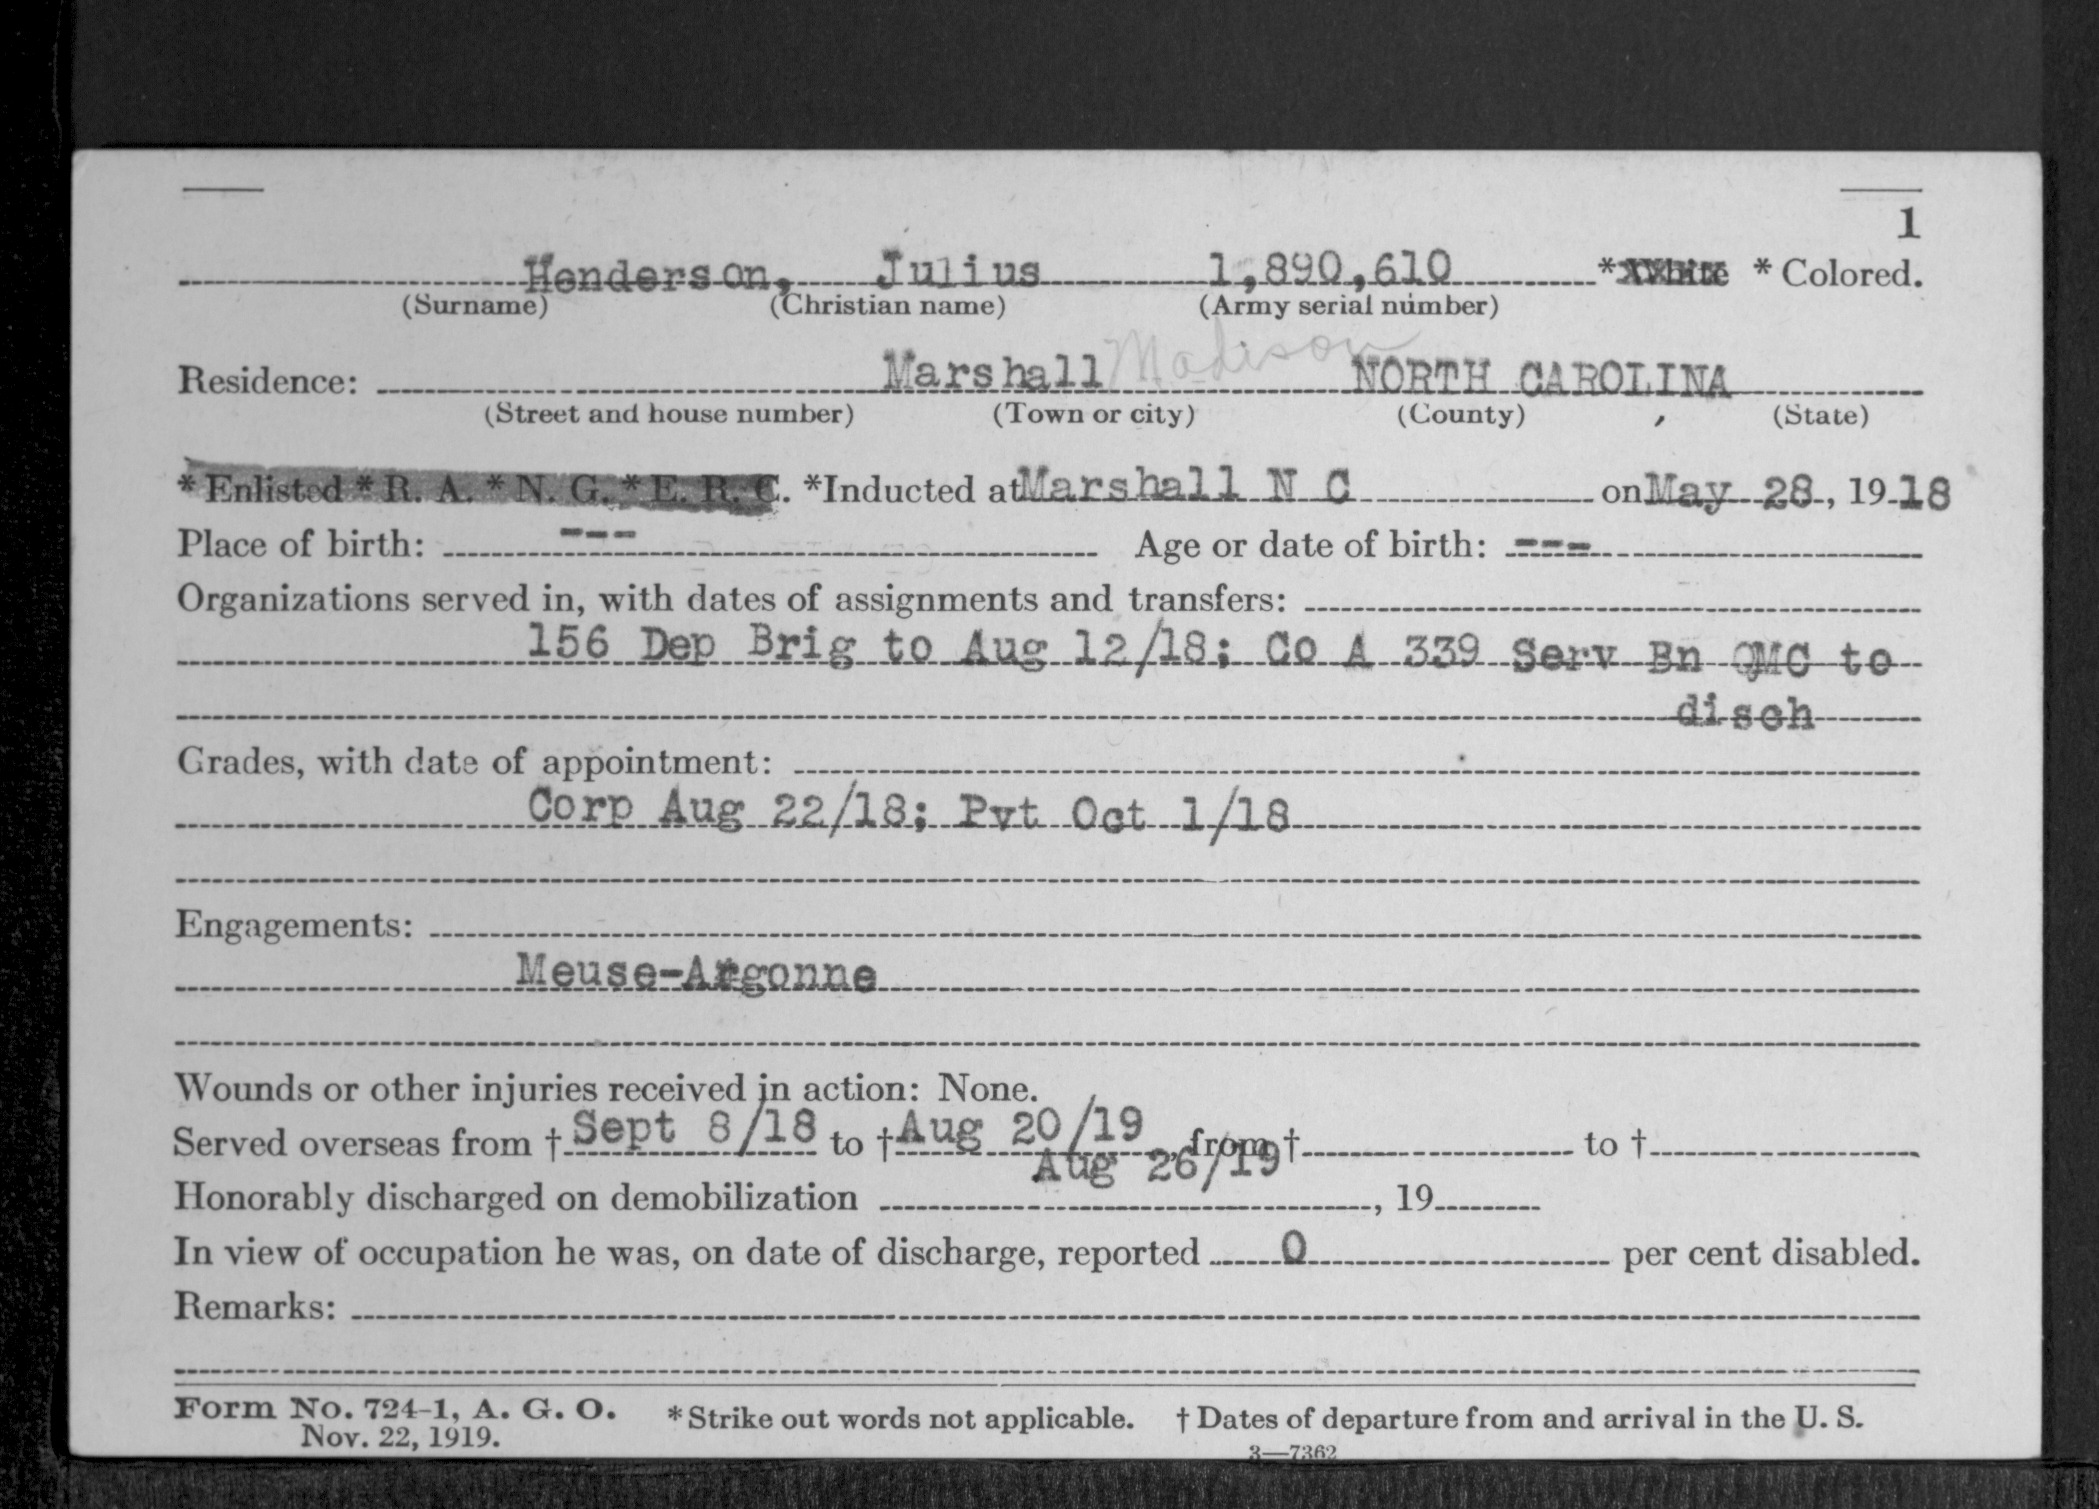 1
Henderson, Julius 1,890,610 *White *Colored.
(Surname) (Christian name) (Army serial number)
Residence: Marshall Madison NORTH CAROLINA
(Street and house number) (Town or city) (County) (State)
*Enlisted *R. A. *N. G. *E. R. C. *Inducted at Marshall N C on May 28, 19 18
Place of birth: --- Age or date of birth: ---
Organizations served in, with dates of assignments and transfers:
156 Dep Brig to Aug 12/18; Co A 339 Serv Bn QMC to
disch
Grades, with date of appointment:
Corp Aug 22/18; Pvt Oct 1/18
Engagements:
Meuse-Argonne
Wounds or other injuries received in action: None.
Served overseas from † Sept 8/18 to † Aug 20/19, from † to †
Aug 26/19
Honorably discharged on demobilization , 19
In view of occupation he was, on date of discharge, reported 0 per cent disabled.
Remarks:
Form No. 724-1, A. G. O. *Strike out words not applicable. † Dates of departure from and arrival in the U. S.
Nov. 22, 1919.
3—7362